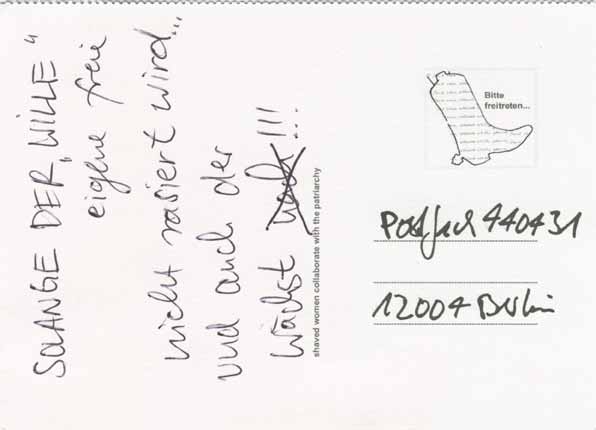 SOLANGE DER „WILLE“
eigene freie
nicht rasiert wird...
und auch der
wächst noch!!!
shaved women collaborate with the patriarchy
Bitte
freitreten...
Postfach 440431
12004 Berlin